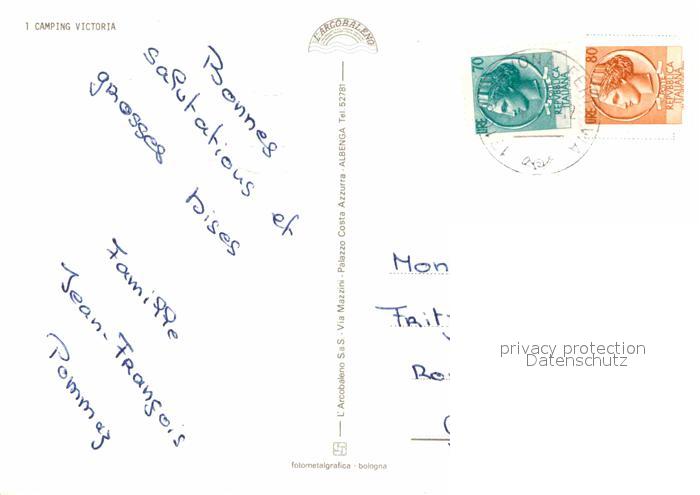 1 CAMPING VICTORIA
L'ARCOBALENO
Bonnes
salutations et
grosses bises
Famille
Jean-François
Pommaz
L'Arcobaleno S.a.S. - Via Mazzini - Palazzo Costa Azzurra - ALBENGA Tel. 52781
fotometalgrafica - bologna
LIRE 70
REPVBBLICA
ITALIANA
LIRE 80
REPVBBLICA
ITALIANA
Mon
Frit
Ro
privacy protection
Datenschutz